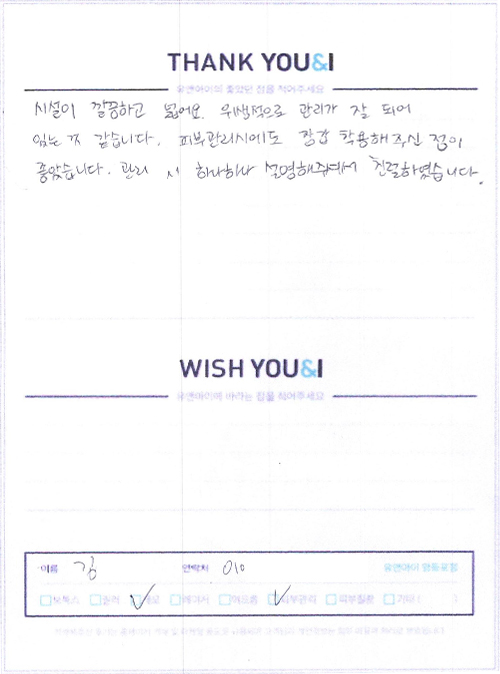 THANK YOU&I
유앤아이의 좋았던 점을 적어주세요
시설이 깔끔하고 넓어요. 위생적으로 관리가 잘 되어
있는 것 같습니다. 피부관리시에도 장갑 착용해주신 점이
좋았습니다. 관리 시 하나하나 설명해주셔서 친절하였습니다.
WISH YOU&I
유앤아이에 바라는 점을 적어주세요
이름 김 연락처 010 유앤아이 영등포점
보톡스 필러 제모 레이저 여드름 피부관리 피부질환 기타 ( )